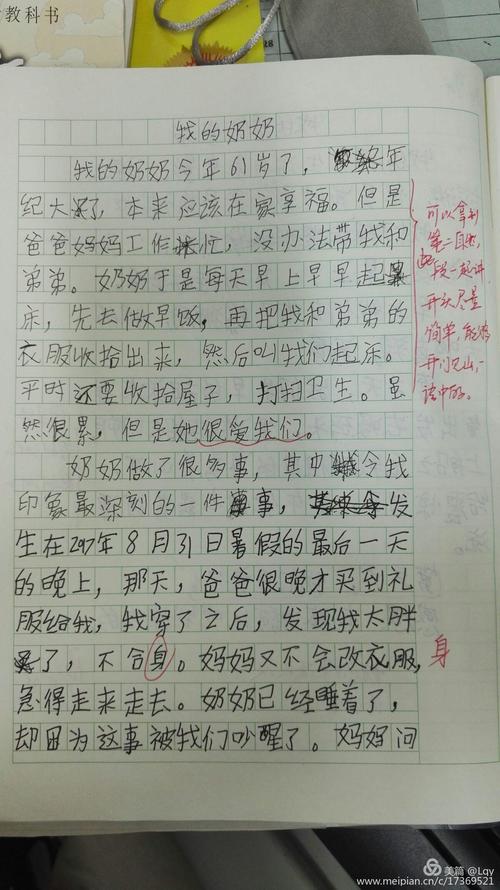 教科书
28
我的奶奶
我的奶奶今年61岁了，年
纪大了，本来应该在家享福。但是
爸爸妈妈工作忙，没办法带我和
弟弟。奶奶于是每天早上早早起
床，先去做早饭，再把我和弟弟的
衣服收拾出来，然后叫我们起床。
平时还要收拾屋子，打扫卫生。虽
然很累，但是她很爱我们。
奶奶做了很多事，其中令我
印象最深刻的一件事，发
生在2017年8月31日暑假的最后一天
的晚上，那天，爸爸很晚才买到礼
服给我，我穿了之后，发现我太胖
了，不合身。妈妈又不会改衣服，
急得走来走去。奶奶已经睡着了，
却因为这事被我们吵醒了。妈妈问
可以拿到
第一自然
段一起讲
开头尽量
简单，能够
开门见山，一
语中的。
身
美篇 @Lqy
www.meipian.cn/c/17369521